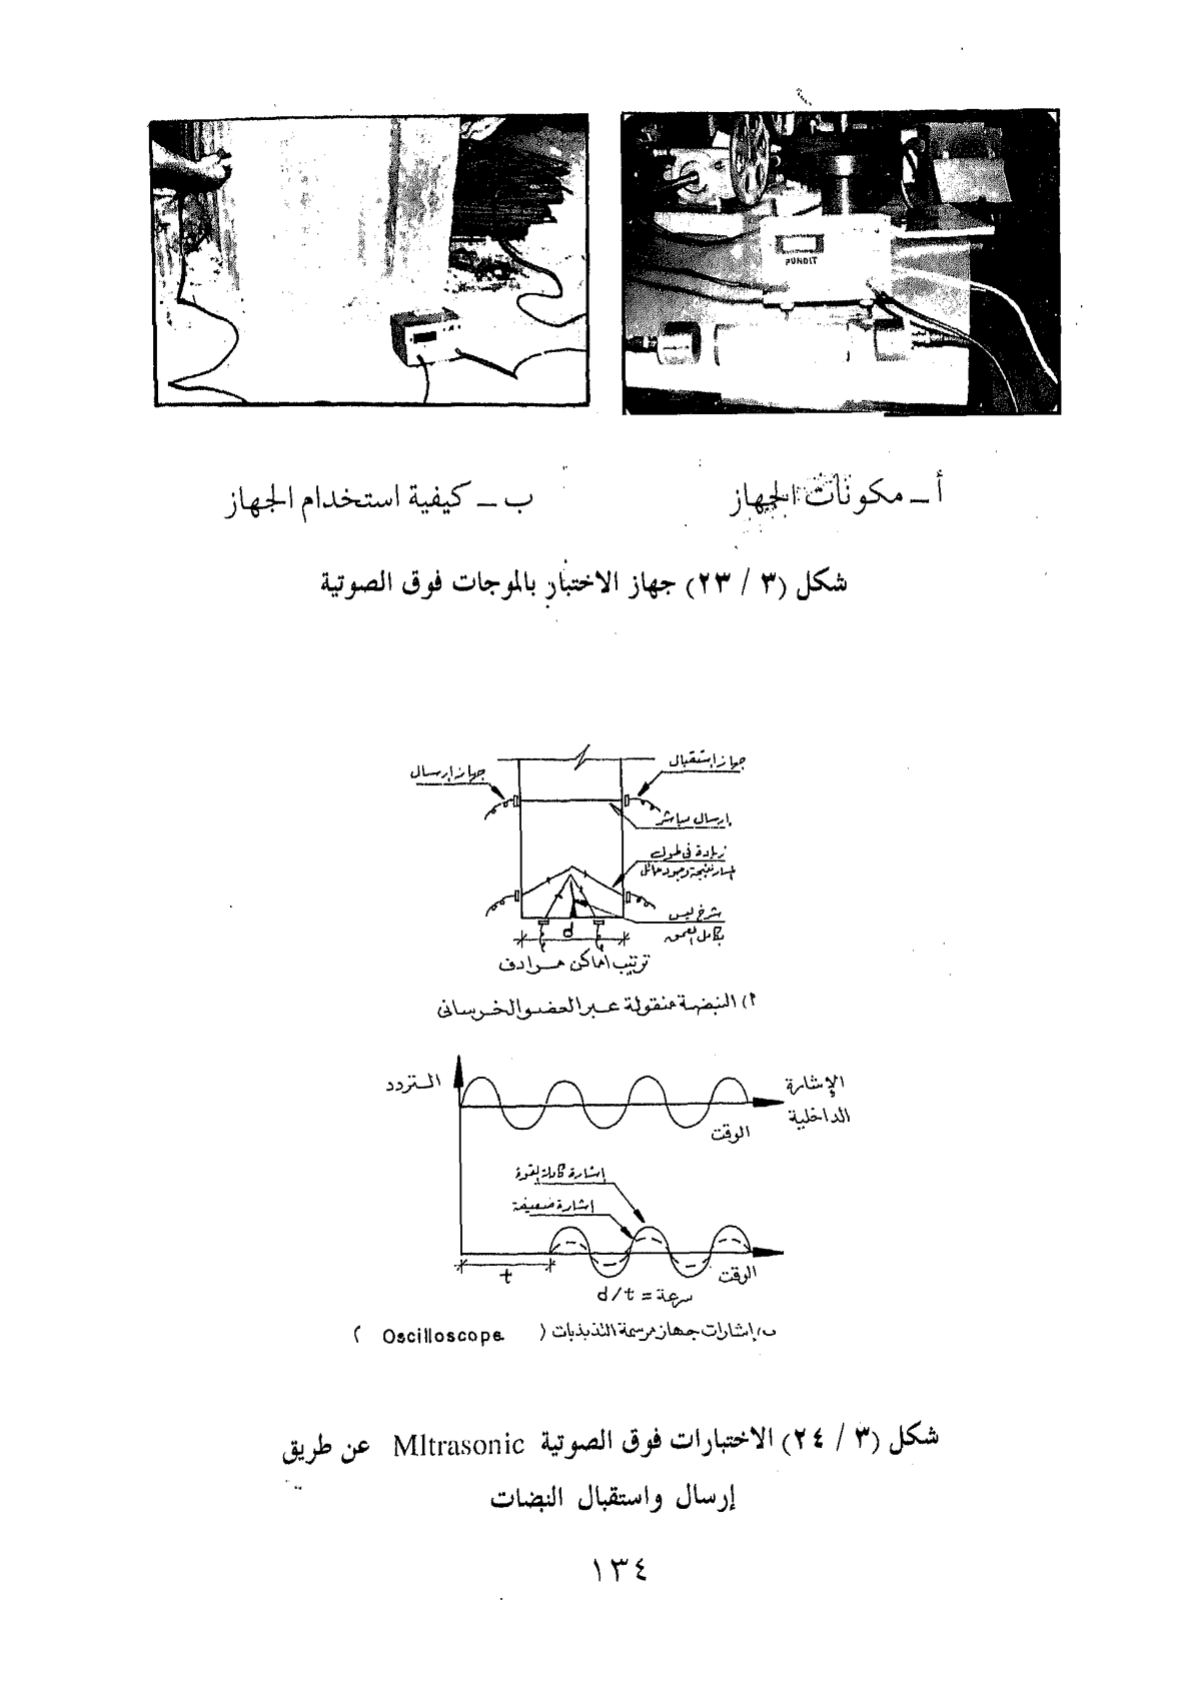 PUNDIT
أ ــ مكونات الجهاز
ب ــ كيفية استخدام الجهاز
شكل (٣ / ٢٣) جهاز الاختبار بالموجات فوق الصوتية
جهاز إستقبال
جهاز إرسال
إرسال مباشر
زيادة فى طول
المسار نتيجة وجود حائل
شرخ ليس
بكامل العمق
d
ترتيب أماكن مرادف
أ) النبضة منقولة عبر العضو الخرسانى
التردد
الإشارة
الداخلية
الوقت
إشارة كاملة القوة
إشارة ضعيفة
الوقت
t
سرعة = d/t
ب) إشارات جهاز مرسمة الذبذبات ( Oscilloscope )
شكل (٣ / ٢٤) الاختبارات فوق الصوتية Mltrasonic عن طريق
إرسال واستقبال النبضات
١٣٤